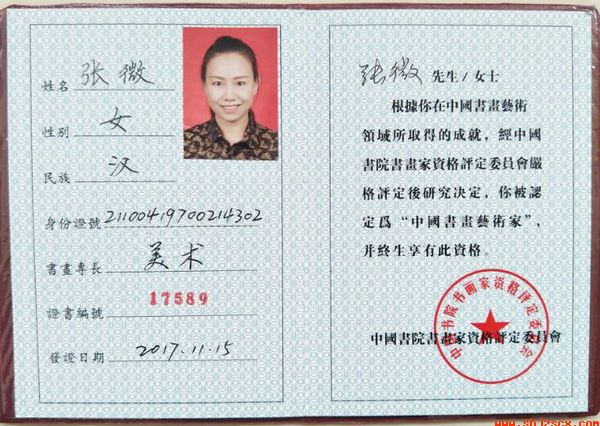 姓名 张微
性别 女
民族 汉
身份證號 21100419700214302
書畫專長 美术
證書編號 17589
發證日期 2017.11.15
张微 先生/女士
根據你在中國書畫藝術
領域所取得的成就，經中國
書院書畫家資格評定委員會嚴
格評定後研究決定，你被認
定爲“中國書畫藝術家”，
并終生享有此資格。
中國書院書畫家資格評定委員會
中国书院书画家资格评定委员会